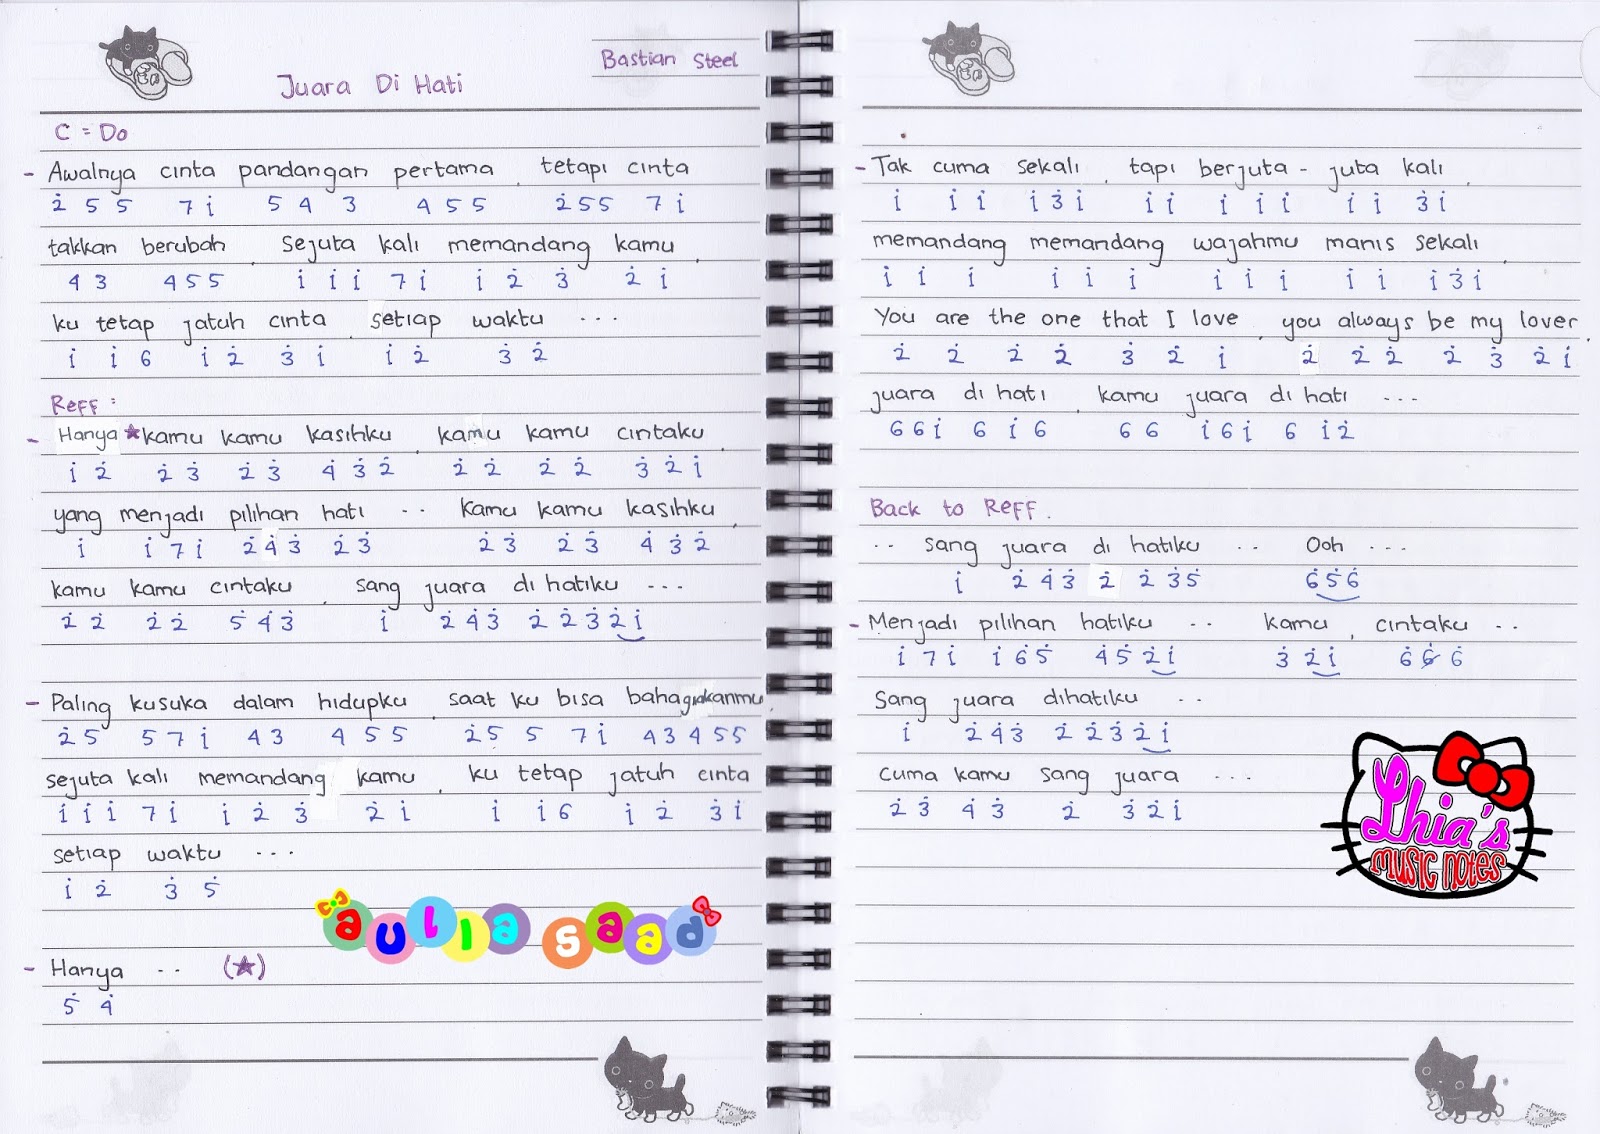 Bastian Steel
Juara Di Hati
C = Do
- Awalnya cinta pandangan pertama, tetapi cinta
2̇ 5 5 7 1̇ 5 4 3 4 5 5 2̇ 5 5 7 1̇
takkan berubah, sejuta kali memandang kamu,
4 3 4 5 5 1̇ 1̇ 1̇ 7 1̇ 1̇ 2̇ 3̇ 2̇ 1̇
ku tetap jatuh cinta, setiap waktu ...
1̇ 1̇ 6 1̇ 2̇ 3̇ 1̇ 1̇ 2̇ 3̇ 2̇
Reff :
- Hanya ★ kamu kamu kasihku, kamu kamu cintaku,
1̇ 2̇ 2̇ 3̇ 2̇ 3̇ 4̇ 3̇ 2̇ 2̇ 2̇ 2̇ 2̇ 3̇ 2̇ 1̇
yang menjadi pilihan hati .. kamu kamu kasihku,
1̇ 1̇ 7 1̇ 2̇ 4̇ 3̇ 2̇ 3̇ 2̇ 3̇ 2̇ 3̇ 4̇ 3̇ 2̇
kamu kamu cintaku, sang juara di hatiku ...
2̇ 2̇ 2̇ 2̇ 5̇ 4̇ 3̇ 1̇ 2̇ 4̇ 3̇ 2̇ 2̇ 3̇ 2̇ 1̇
- Paling kusuka dalam hidupku, saat ku bisa bahagiakanmu,
2̇ 5 5 7 1̇ 4 3 4 5 5 2̇ 5 5 7 1̇ 4 3 4 5 5
sejuta kali memandang kamu, ku tetap jatuh cinta
1̇ 1̇ 1̇ 7 1̇ 1̇ 2̇ 3̇ 2̇ 1̇ 1̇ 1̇ 6 1̇ 2̇ 3̇ 1̇
setiap waktu ...
1̇ 2̇ 3̇ 5̇
aulia saad
- Hanya .. (★)
5̇ 4̇
- Tak cuma sekali, tapi berjuta - juta kali,
1̇ 1̇ 1̇ 1̇ 3̇ 1̇ 1̇ 1̇ 1̇ 1̇ 1̇ 1̇ 1̇ 3̇ 1̇
memandang memandang wajahmu manis sekali,
1̇ 1̇ 1̇ 1̇ 1̇ 1̇ 1̇ 1̇ 1̇ 1̇ 1̇ 1̇ 3̇ 1̇
You are the one that I love, you always be my lover,
2̇ 2̇ 2̇ 2̇ 3̇ 2̇ 1̇ 2̇ 2̇ 2̇ 2̇ 3̇ 2̇ 1̇
juara di hati, kamu juara di hati ...
6 6 1̇ 6 1̇ 6 6 6 1̇ 6 1̇ 6 1̇ 2̇
Back to Reff.
.. sang juara di hatiku .. Ooh ...
1̇ 2̇ 4̇ 3̇ 2̇ 2̇ 3̇ 5̇ 6̇ 5̇ 6̇
- Menjadi pilihan hatiku .. kamu, cintaku ..
1̇ 7 1̇ 1̇ 6̇ 5̇ 4̇ 5̇ 2̇ 1̇ 3̇ 2̇ 1̇ 6̇ 6̇ 6̇
Sang juara dihatiku ..
1̇ 2̇ 4̇ 3̇ 2̇ 2̇ 3̇ 2̇ 1̇
Cuma kamu sang juara ...
2̇ 3̇ 4̇ 3̇ 2̇ 3̇ 2̇ 1̇
Lhia's
music notes